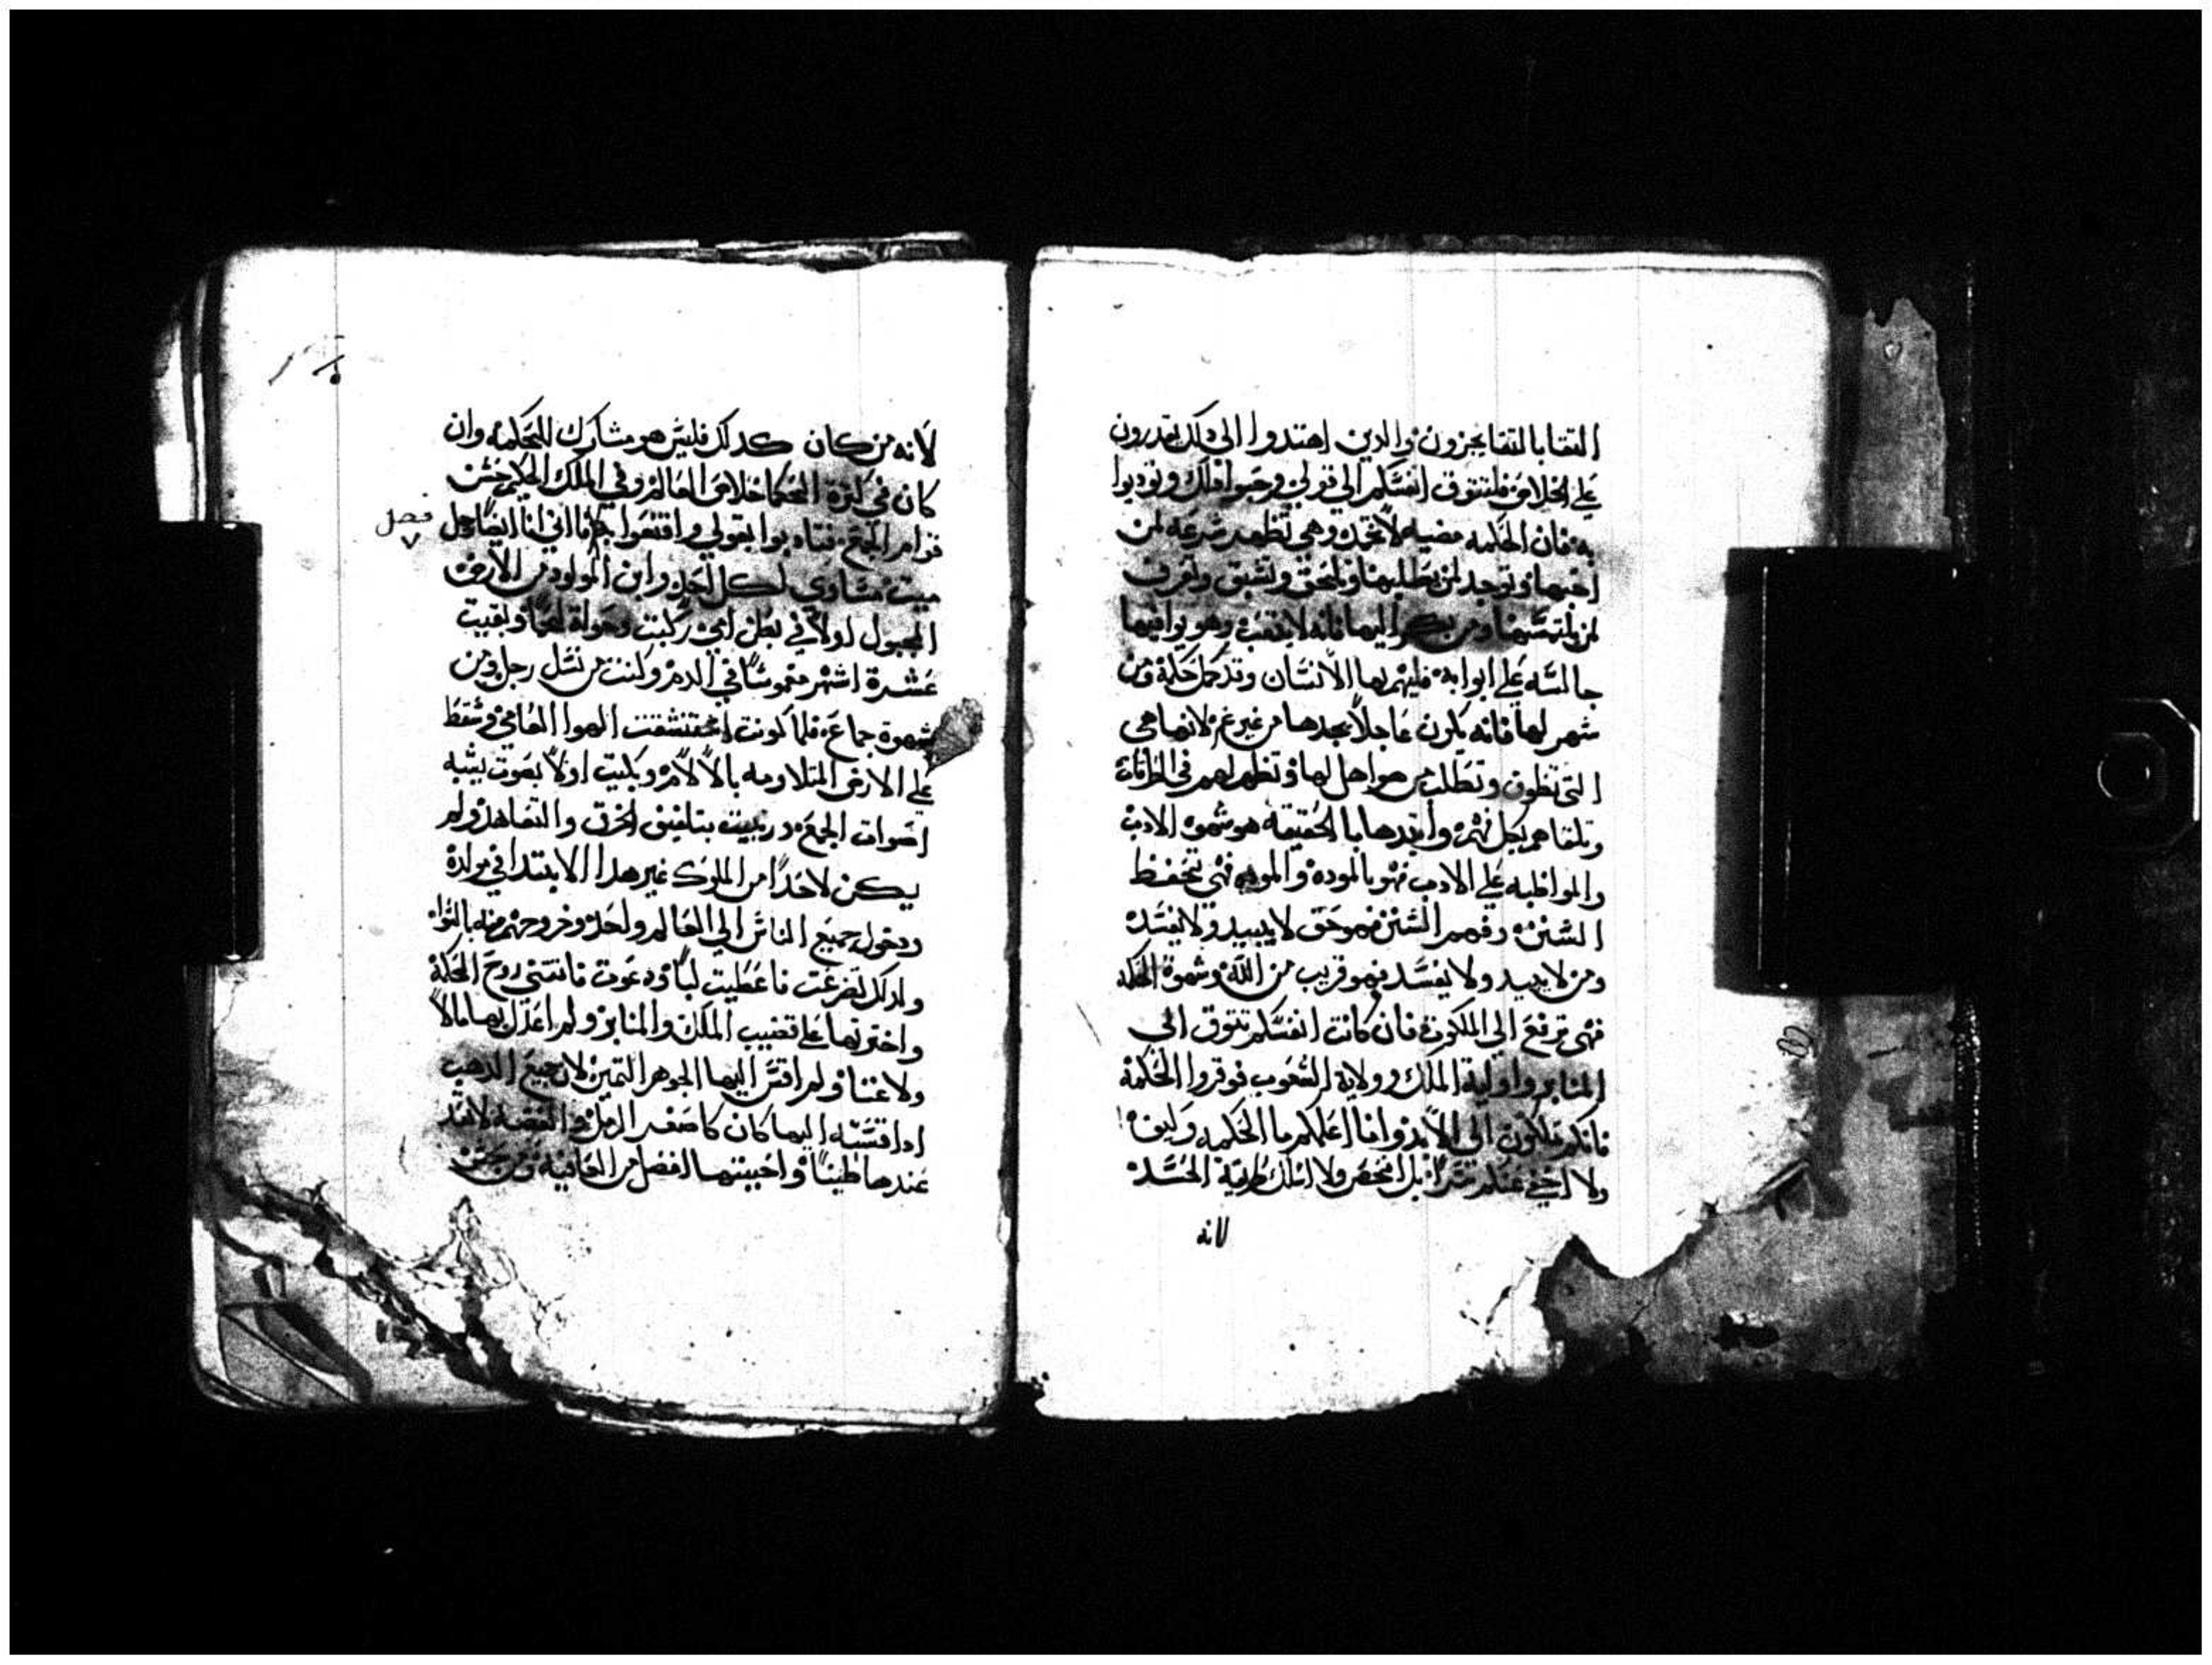 التقا بالتقا يجزون والدين اهتدوا الي دلك يقدرون
علي الخلاص فلتتوق انفسكم الي قولي وحبوا دلك وتودبوا
به فان الحكمه مضيه لا تخمد وهي تظهر سرعه لمن
احبها وتوجد لمن يطلبها وتلحق وتسبق وتعرف
لمن يلتمسها ومن بكر اليها فانه لا يتعب وهو يوافيها
جالسه علي ابوابه فليهم بها الانسان وقد كمل حكمة ومن
سهر لها فانه يكون عاجلاً يجدها من غير غم لانها هي
التي تطوف وتطلب من هو اهل لها وتظهر لهم في الطرقات
وتلقاهم بكل نهم وابتدها بالحقيقه هو شهوة الادب
والمواظبه علي الادب فهو بالموده والموده فهي تحفظ
السنن وفهم السنن فهو حق لا يبيد ولا يفسد
ومن لا يبيد ولا يفسد فهو قريب من الله وشهوة الحكمه
فهي ترفع الي الملكوت فان كانت انفسكم تتوق الي
المنابر واولية الملك وولاية الشعوب فوقروا الحكمة
فانكم تملكون الي الابد وانا اعلمكم ما الحكمه وكيف
ولا اخفي عنكم سراً بل افحص ولا اسلك طريقة الحسد
لانه
لانه من كان كدلك فليس هو مشارك للحكمه وان
كان في كثرة الحكما خلاص العالم وفي الملك الحكيم حسن
قوام الجمع فتادبوا بقولي وانتفعوا اني انا ايضاً رجل
فصل
٧
ميت مساوي لكل احد وابن المولود من الارض
المجبول اولاً في بطن امي ركبت وبقيت
عشرة اشهر مغموساً في الدم وكنت من نسل رجل ومن
شهوة جماع فلما كونت استنشقت الهوا العامي وسقط
علي الارض المتلاومه بالالام وبكيت اولاً بصوت يشبه
اصوات الجمع وربيت بتلفيف الخرق والتعاهد ولم
يكن لاحداً من الملوك غير هدا الابتدا في مولده
ودخول جميع الناس الي العالم واحد وخروجهم منه بالسوا
ولدلك تضرعت فاعطيت لباً ودعوت فاتتني روح الحكمة
واخترتها علي قضيب الملك والمنابر ولم اعدل بها مالاً
ولا غنا ولم اقس اليها الجوهر التمين لان جميع الدهب
ادا قسته اليها كان كاصغر الرمل والفضه لا تعد
عندها طيناً واحببتها افضل من العافيه ومن حسن